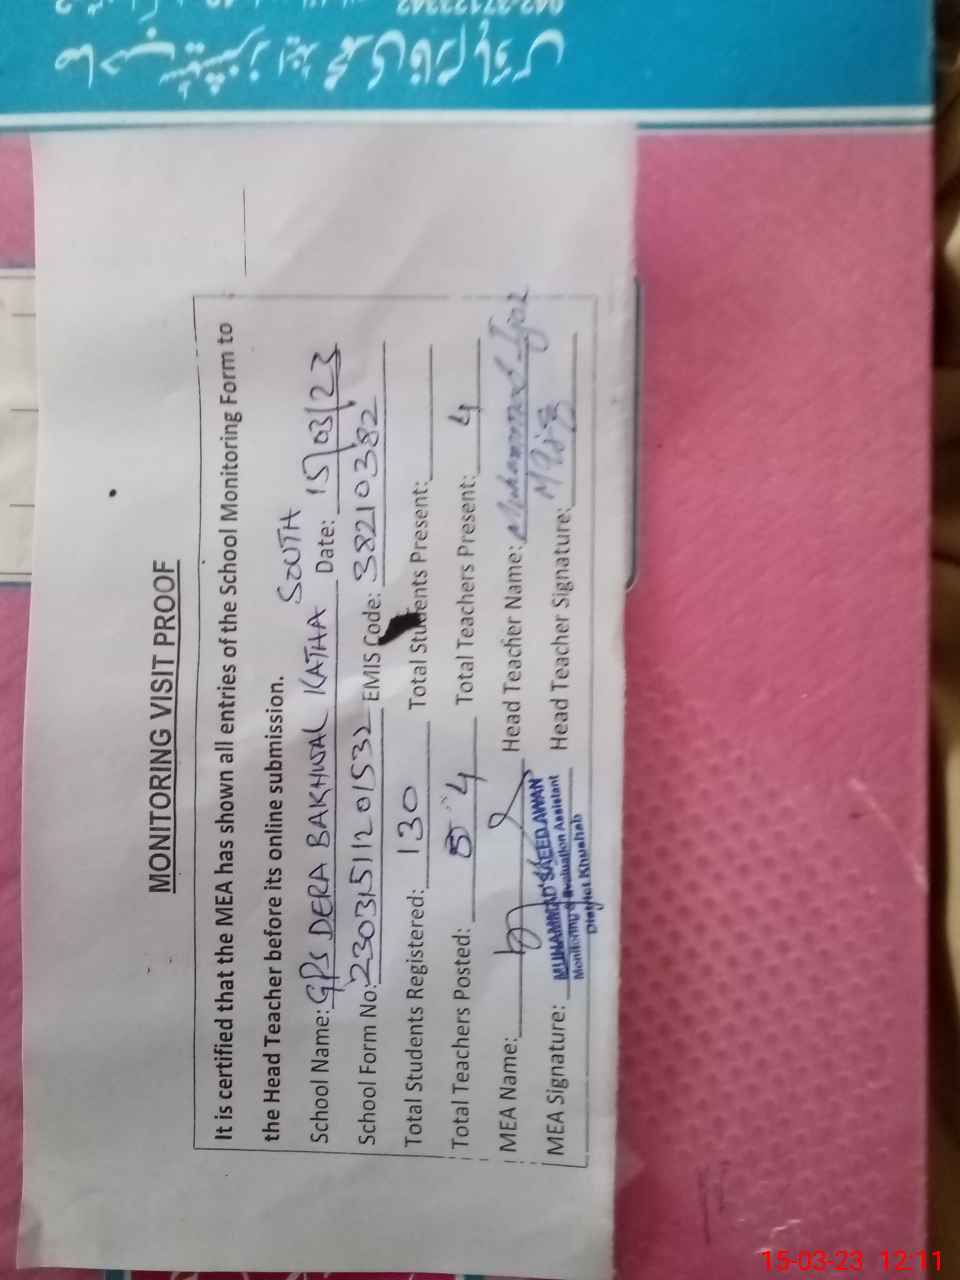 MONITORING VISIT PROOF
It is certified that the MEA has shown all entries of the School Monitoring Form to
the Head Teacher before its online submission.
School Name: GPS DERA BAKHWAL KATHA SOUTH Date: 15/03/23
School Form No: 23031511201532 EMIS Code: 38210382
Total Students Registered: 130 Total Students Present:
Total Teachers Posted: 4 Total Teachers Present: 4
MEA Name: Head Teacher Name: Muhammad Ijaz
MEA Signature: Head Teacher Signature:
MUHAMMAD SAEED AWAN
Monitoring & Evaluation Assistant
District Khushab
15-03-23 12:11